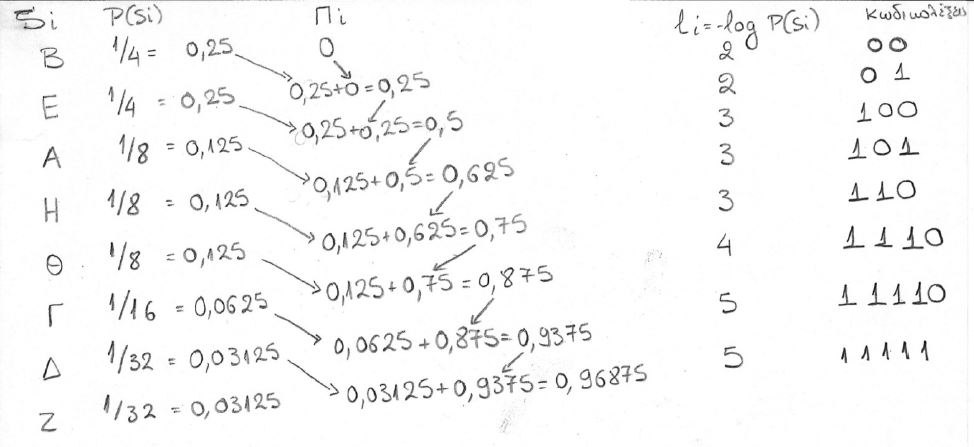 Si P(Si) Πi li=-log P(Si) κωδικολέξεις
B 1/4 = 0,25 0 2 00
E 1/4 = 0,25 0,25+0=0,25 2 01
A 1/8 = 0,125 0,25+0,25=0,5 3 100
H 1/8 = 0,125 0,125+0,5=0,625 3 101
Θ 1/8 = 0,125 0,125+0,625=0,75 3 110
Γ 1/16 = 0,0625 0,125+0,75=0,875 4 1110
Δ 1/32 = 0,03125 0,0625+0,875=0,9375 5 11110
Z 1/32 = 0,03125 0,03125+0,9375=0,96875 5 11111